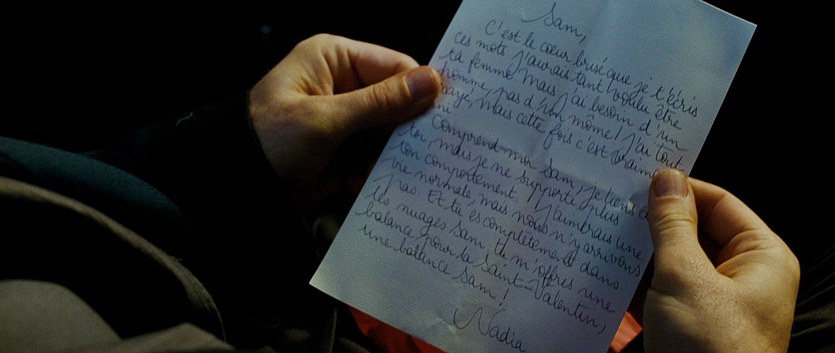 Sam,
C'est le cœur brisé que je t'écris
ces mots. J'aurais tant voulu être
ta femme mais j'ai besoin d'un
homme, pas d'un môme! J'ai tout
mais cette fois c'est vraim
ni
Comprend-moi Sam, je tiens à
toi mais je ne supporte plus
ton comportement. J'aimerais une
vie normale, mais nous n'y arrivons
pas. Et tu es complètement dans
les nuages Sam, tu m'offres une
balance pour la Saint-Valentin,
une balance Sam!
Nadia